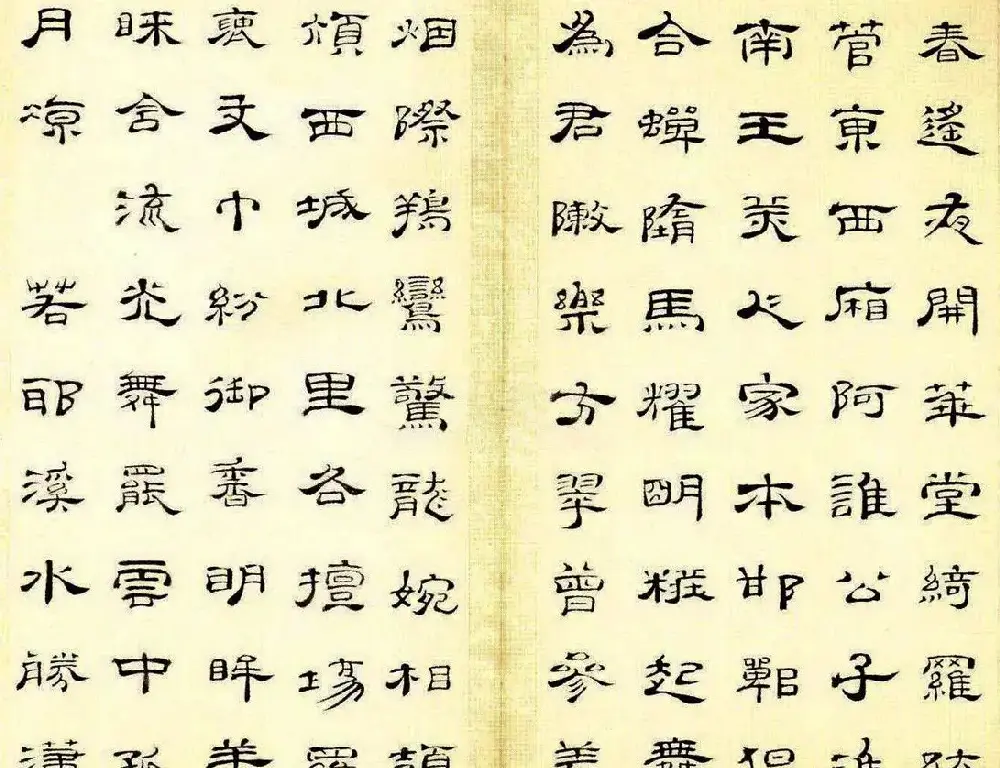 春遙夜開華堂綺羅
管東西廂阿誰公子
南王美人家本邯鄲
合蟬隋馬耀明粧起舞
為君敶樂方翠曾參差
烟際鸞驚龍婉相頡
頏西城北里各擅場羅
褎文巾紛御香明眸美
睞含流光舞罷雲中孤
月凉 若耶溪水勝瀟